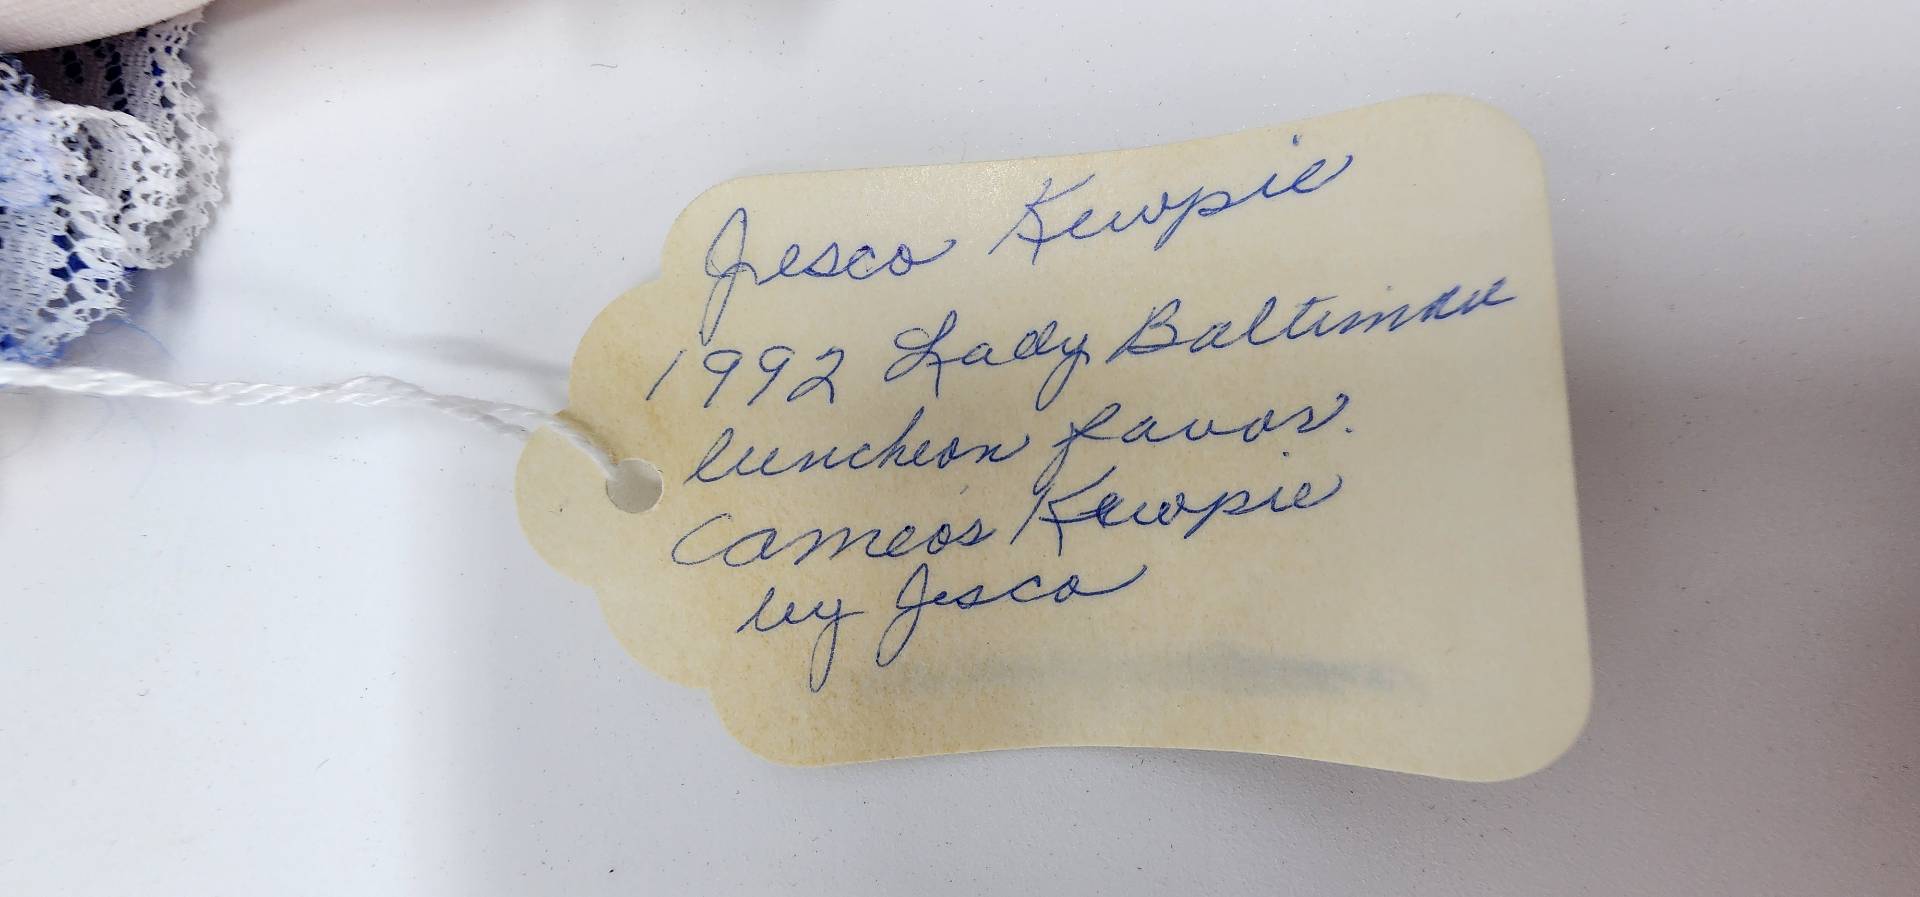 Jesco Kewpie
1992 Lady Baltimore
luncheon favor.
Cameo's Kewpie
by Jesco